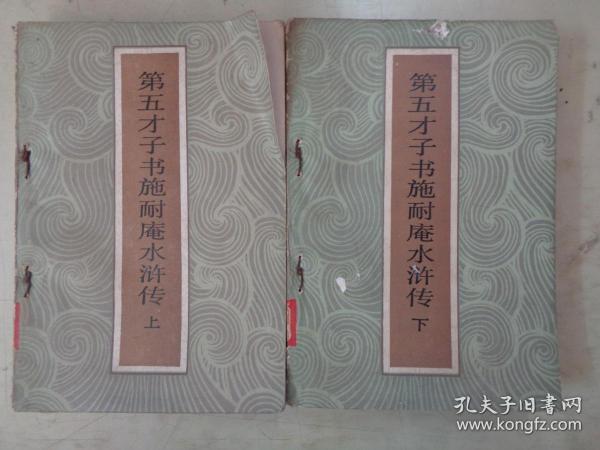 第五才子书施耐庵水浒传 上
第五才子书施耐庵水浒传 下
孔夫子旧书网
www.kongfz.com